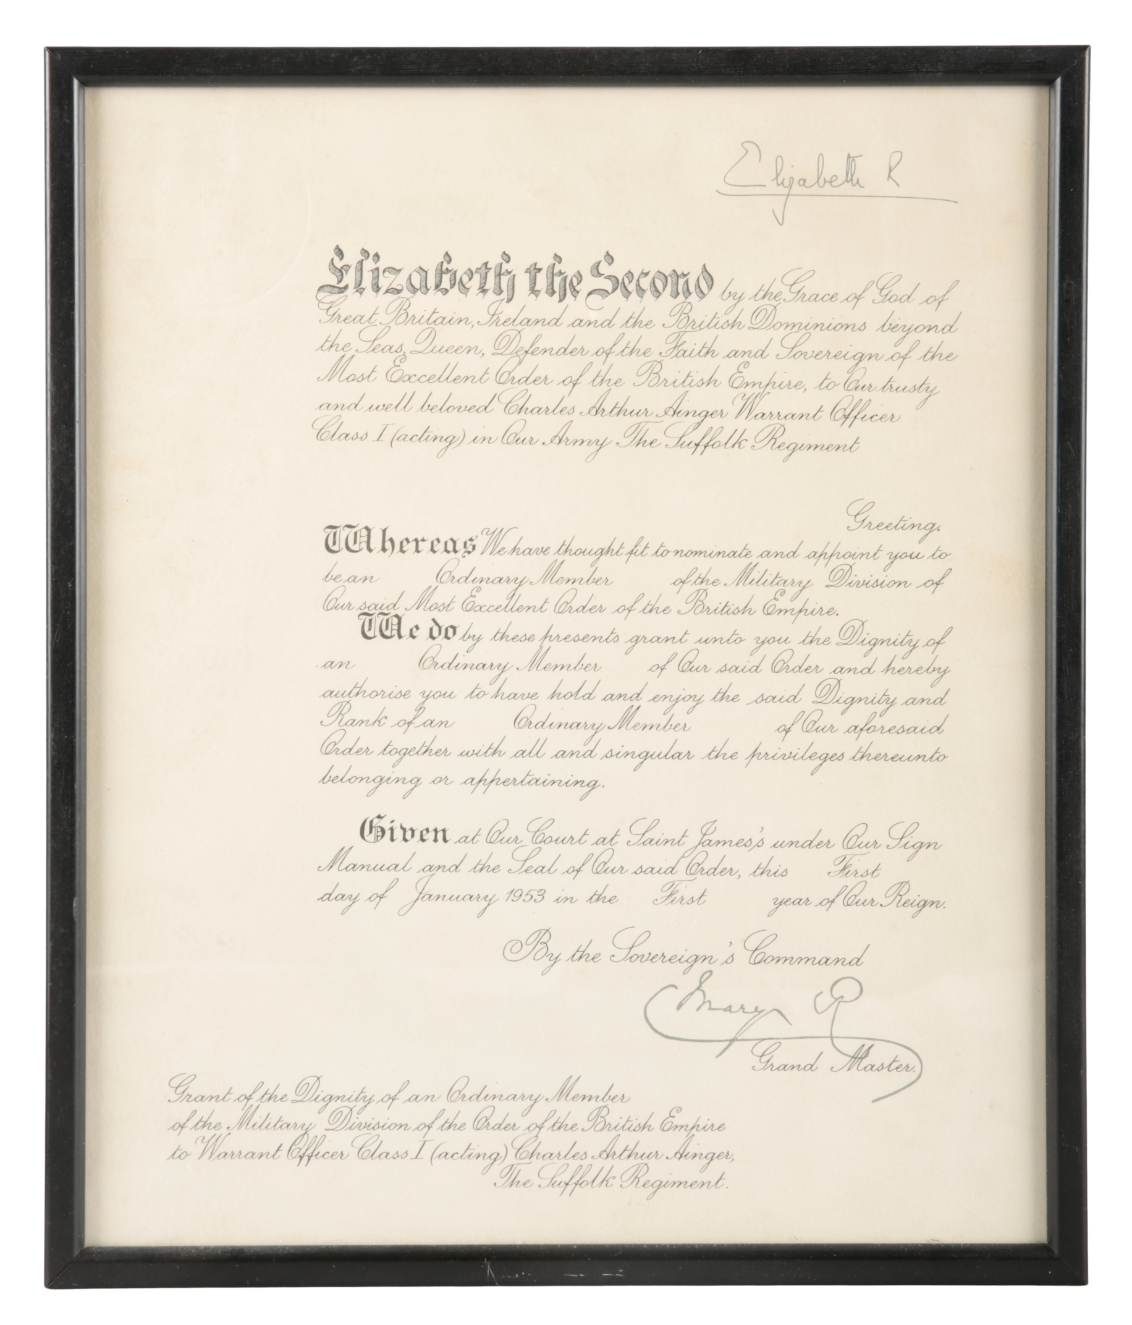 Elizabeth R
Elizabeth the Second by the Grace of God of
Great Britain, Ireland and the British Dominions beyond
the Seas, Queen, Defender of the Faith and Sovereign of the
Most Excellent Order of the British Empire, to Our trusty
and well beloved Charles Arthur Ainger Warrant Officer
Class I (acting) in Our Army The Suffolk Regiment
Greeting,
Whereas We have thought fit to nominate and appoint you to
be an Ordinary Member of the Military Division of
Our said Most Excellent Order of the British Empire.
We do by these presents grant unto you the Dignity of
an Ordinary Member of Our said Order and hereby
authorise you to have hold and enjoy the said Dignity and
Rank of an Ordinary Member of Our aforesaid
Order together with all and singular the privileges thereunto
belonging or appertaining.
Given at Our Court at Saint James's under Our Sign
Manual and the Seal of Our said Order, this First
day of January 1953 in the First year of Our Reign.
By the Sovereign's Command
Mary R
Grand Master.
Grant of the Dignity of an Ordinary Member
of the Military Division of the Order of the British Empire
to Warrant Officer Class I (acting) Charles Arthur Ainger,
The Suffolk Regiment.